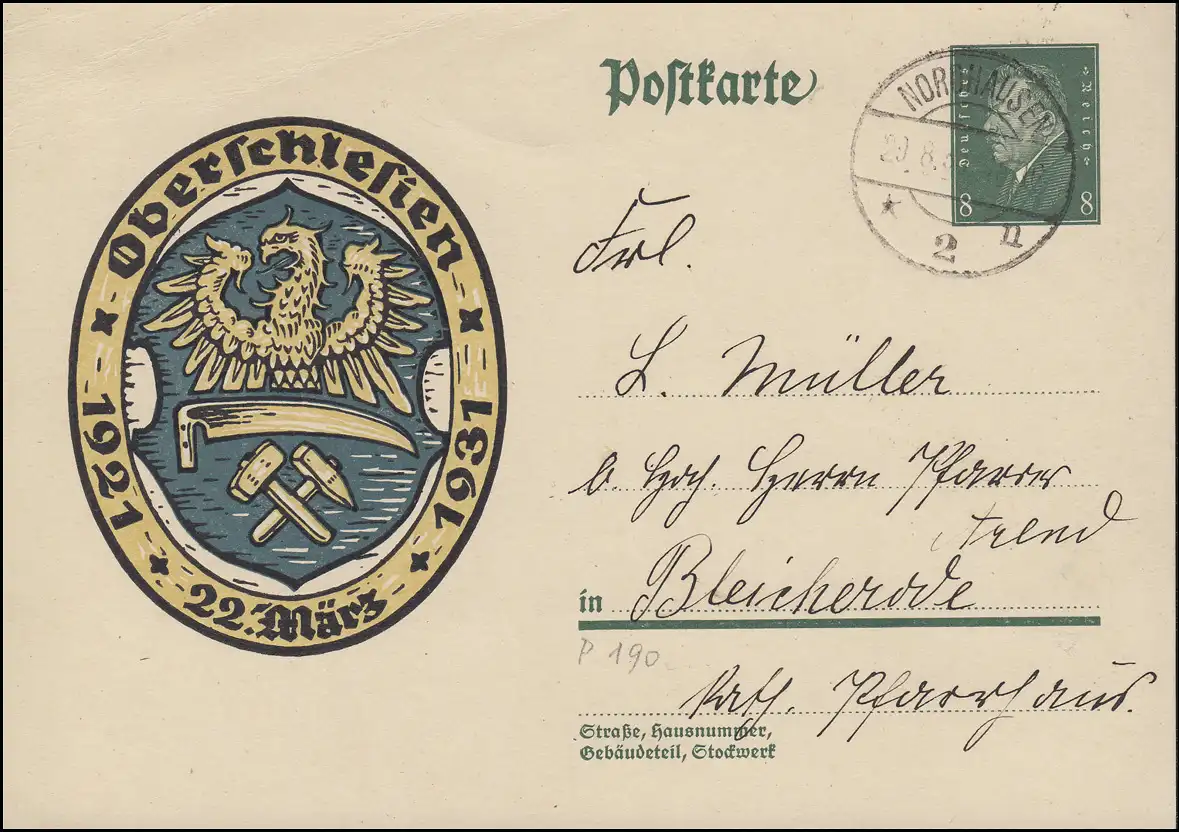 Oberschlesien
1921 1931
22. März
Postkarte
NORDHAUSEN
2 n
Deutsches Reich
8 8
Frl.
L. Müller
b. Hoch. Herrn Pfarrer
in Bleicherode
P 190
Kath. Pfarrhaus.
Straße, Hausnummer,
Gebäudeteil, Stockwerk